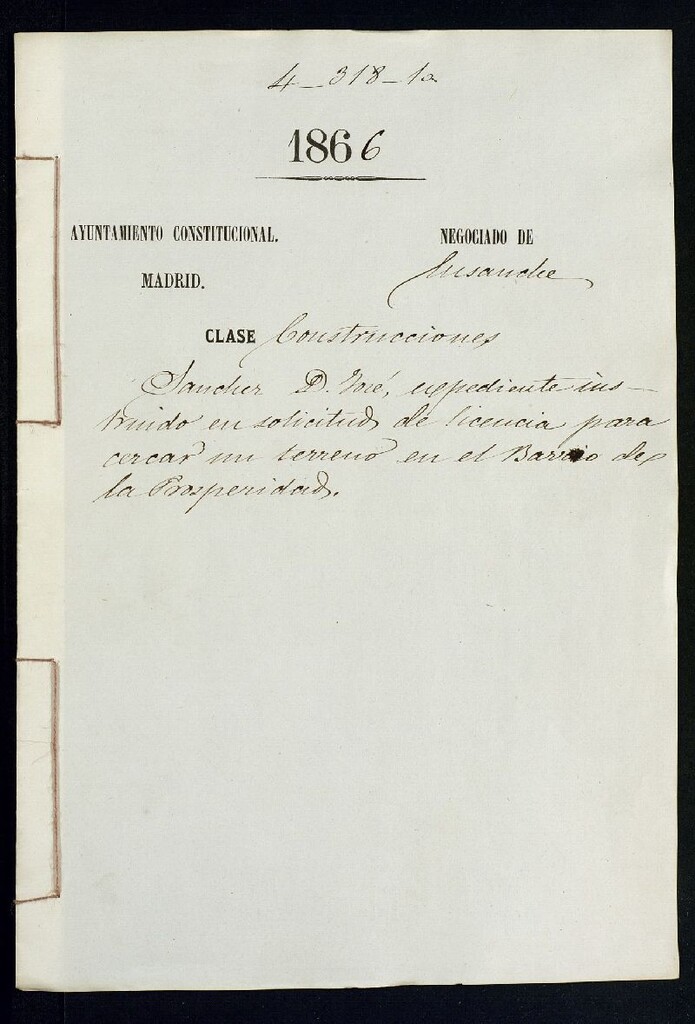 4_318_1a
1866
AYUNTAMIENTO CONSTITUCIONAL.
MADRID.
NEGOCIADO DE
Ensanche
CLASE Construcciones
Sanchez D. José, espediente ins-
truido en solicitud de licencia para
cercar un terreno en el Barrio de
la Prosperidad.